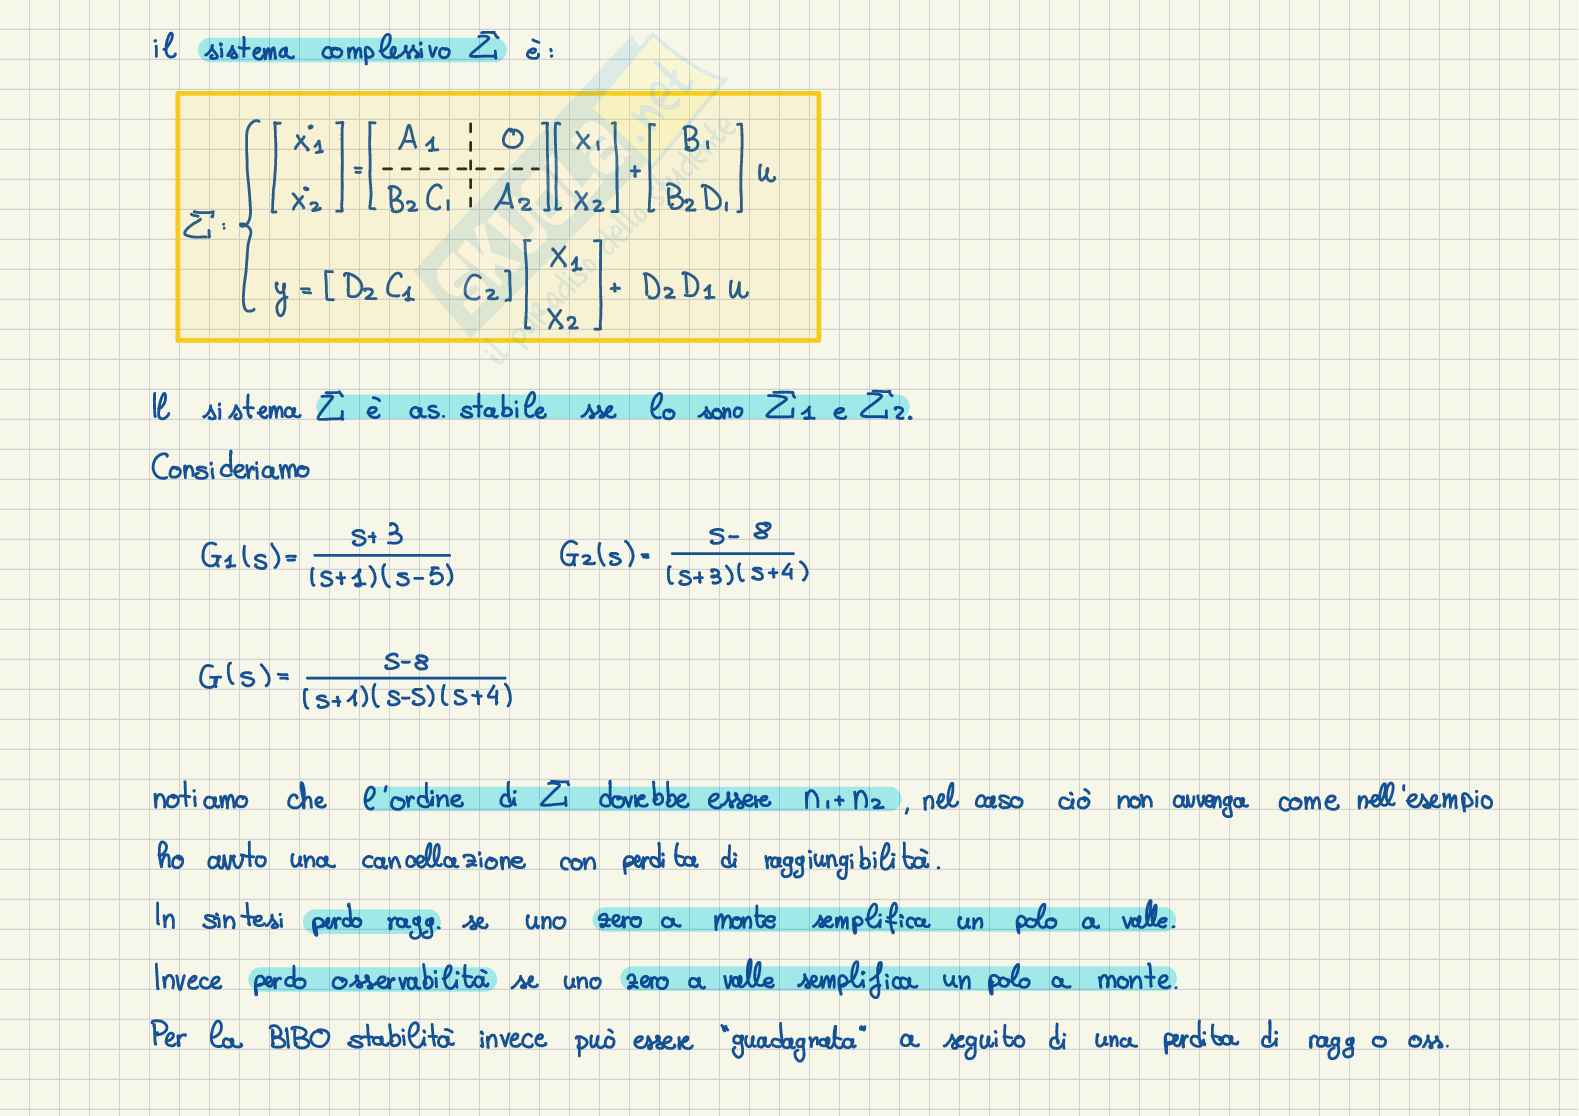 il sistema complessivo Σ è:
Σ: { [ẋ1 ẋ2] = [A1 0 B2C1 A2] [x1 x2] + [B1 B2D1] u
y = [D2C1 C2] [x1 x2] + D2D1 u
SKUOLA.net
il paradiso dello studente
Il sistema Σ è as. stabile sse lo sono Σ1 e Σ2.
Consideriamo
G1(s) = (s+3)/((s+1)(s-5)) G2(s) = (s-8)/((s+3)(s+4))
G(s) = (s-8)/((s+1)(s-5)(s+4))
notiamo che l'ordine di Σ dovrebbe essere n1+n2, nel caso ciò non avvenga come nell'esempio
ho avuto una cancellazione con perdita di raggiungibilità.
In sintesi perdo ragg. se uno zero a monte semplifica un polo a valle.
Invece perdo osservabilità se uno zero a valle semplifica un polo a monte.
Per la BIBO stabilità invece può essere "guadagnata" a seguito di una perdita di ragg o oss.